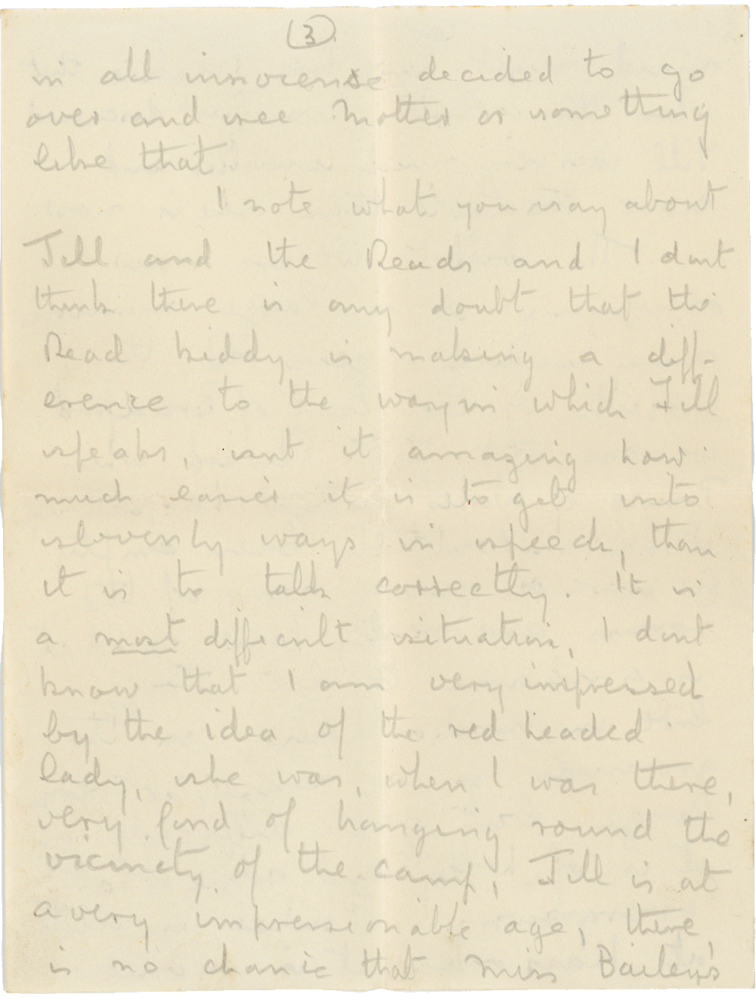 (3)
in all innocense decided to go
over and see Mother or something
like that.
I note what you say about
Jill and the Reads and I dont
think there is any doubt that the
Read kiddy is making a diff-
erence to the way in which Jill
speaks, isnt it amazing how
much easier it is to get into
slovenly ways in speech, than
it is to talk correctly. It is
a most difficult situation, I dont
know that I am very impressed
by the idea of the red headed
lady, she was, when I was there,
very fond of hanging round the
vicinity of the camp, Jill is at
a very impressionable age, there,
is no chance that Miss Bailey's